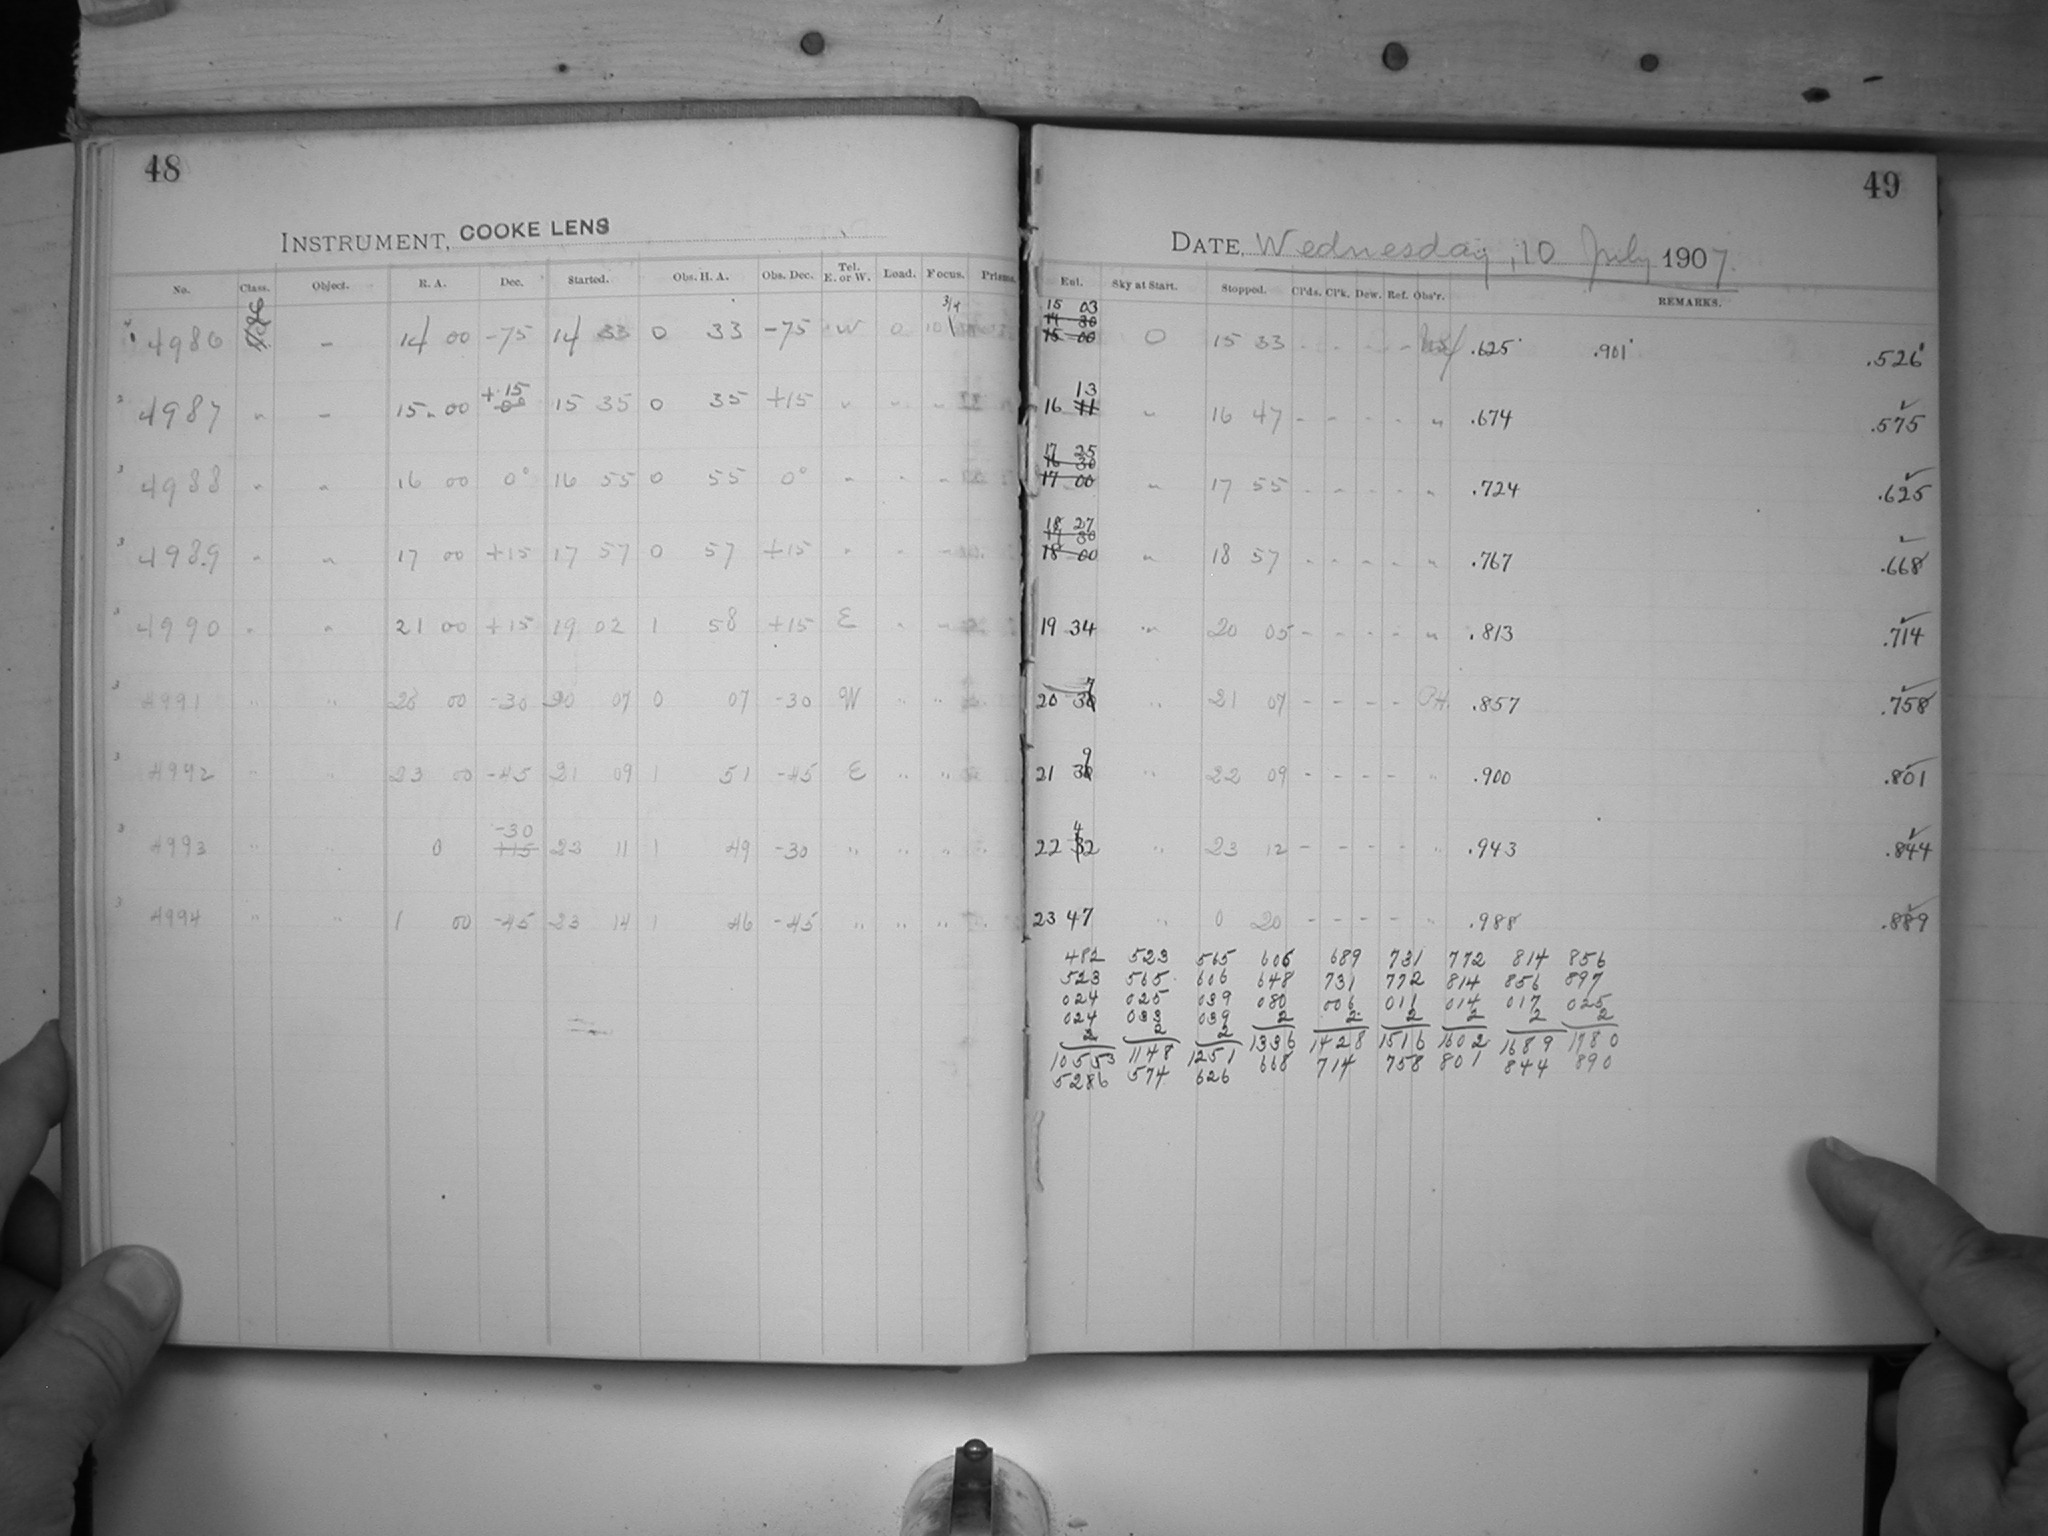 48
INSTRUMENT, COOKE LENS
No. Class. Object. R. A. Dec. Started. Obs. H. A. Obs. Dec. Tel. E. or W. Load. Focus. Prisms.
3/4
4986 – 14 00 –75 14 33 0 33 –75 W 0 10
+15
4987 " – 15 00 00 15 35 0 35 +15 " " "
4988 " " 16 00 0° 16 55 0 55 0° " " "
4989 " " 17 00 +15 17 57 0 57 +15 " " "
4990 " " 21 00 +15 19 02 1 58 +15 E " "
4991 " " 20 00 –30 20 07 0 07 –30 W " "
4992 " " 23 00 –45 21 09 1 51 –45 E " "
–30
4993 " " 0 +15 22 11 1 49 –30 " " "
4994 " " 1 00 –45 23 14 1 46 –45 " " "
49
DATE, Wednesday, 10 July 1907.
Ent. Sky at Start. Stopped. Cl'ds. Cl'k. Dew. Ref. Obs'r. REMARKS.
15 03
14 30
15 00 0 15 33 - - - - .625 .901 .526
13
16 11 " 16 47 - - - - " .674 .575
17 25
16 30
17 00 " 17 55 - - - - " .724 .625
18 27
17 30
18 00 " 18 57 - - - - " .767 .668
19 34 " 20 05 - - - - " .813 .714
7
20 30 " 21 07 - - - - .857 .758
9
21 30 " 22 09 - - - - " .900 .801
4
22 32 " 23 12 - - - - " .943 .844
23 47 " 0 20 - - - - " .988 .889
482 523 565 606 689 731 772 814 856
523 565 606 648 731 772 814 856 897
024 025 039 080 006 011 014 017 025
024 033 039 2 2 2 2 2 2
2 2 2 1336 1428 1516 1602 1689 1780
10553 1148 1251 668 714 758 801 844 890
5286 574 626